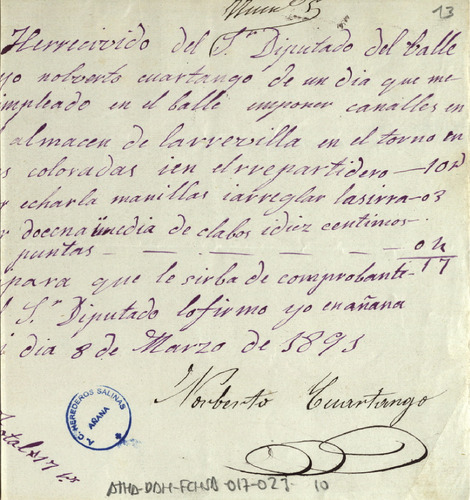 Num. 5
13
Herrecivido del Sr Diputado del balle
yo nolverto cuartango de un dia que me
impleado en el balle emponer canalles en
almacen de Larrevilla en el torno en
s coloradas ien elrrepartidero — 10
r echarla manillas iarreglar lasirra - 03
r doecna imedia de clabos idiez centimos
puntas — — — — — 04
17
para que le sirba de comprobanti-
l Sr Diputado lofirmo yo enañana
i dia 8 de Marzo de 1891
Norberto Cuartango
A.C. HEREDEROS SALINAS
ARANA
Total 17
ATHA-DAH-FCHSA-017-027 10